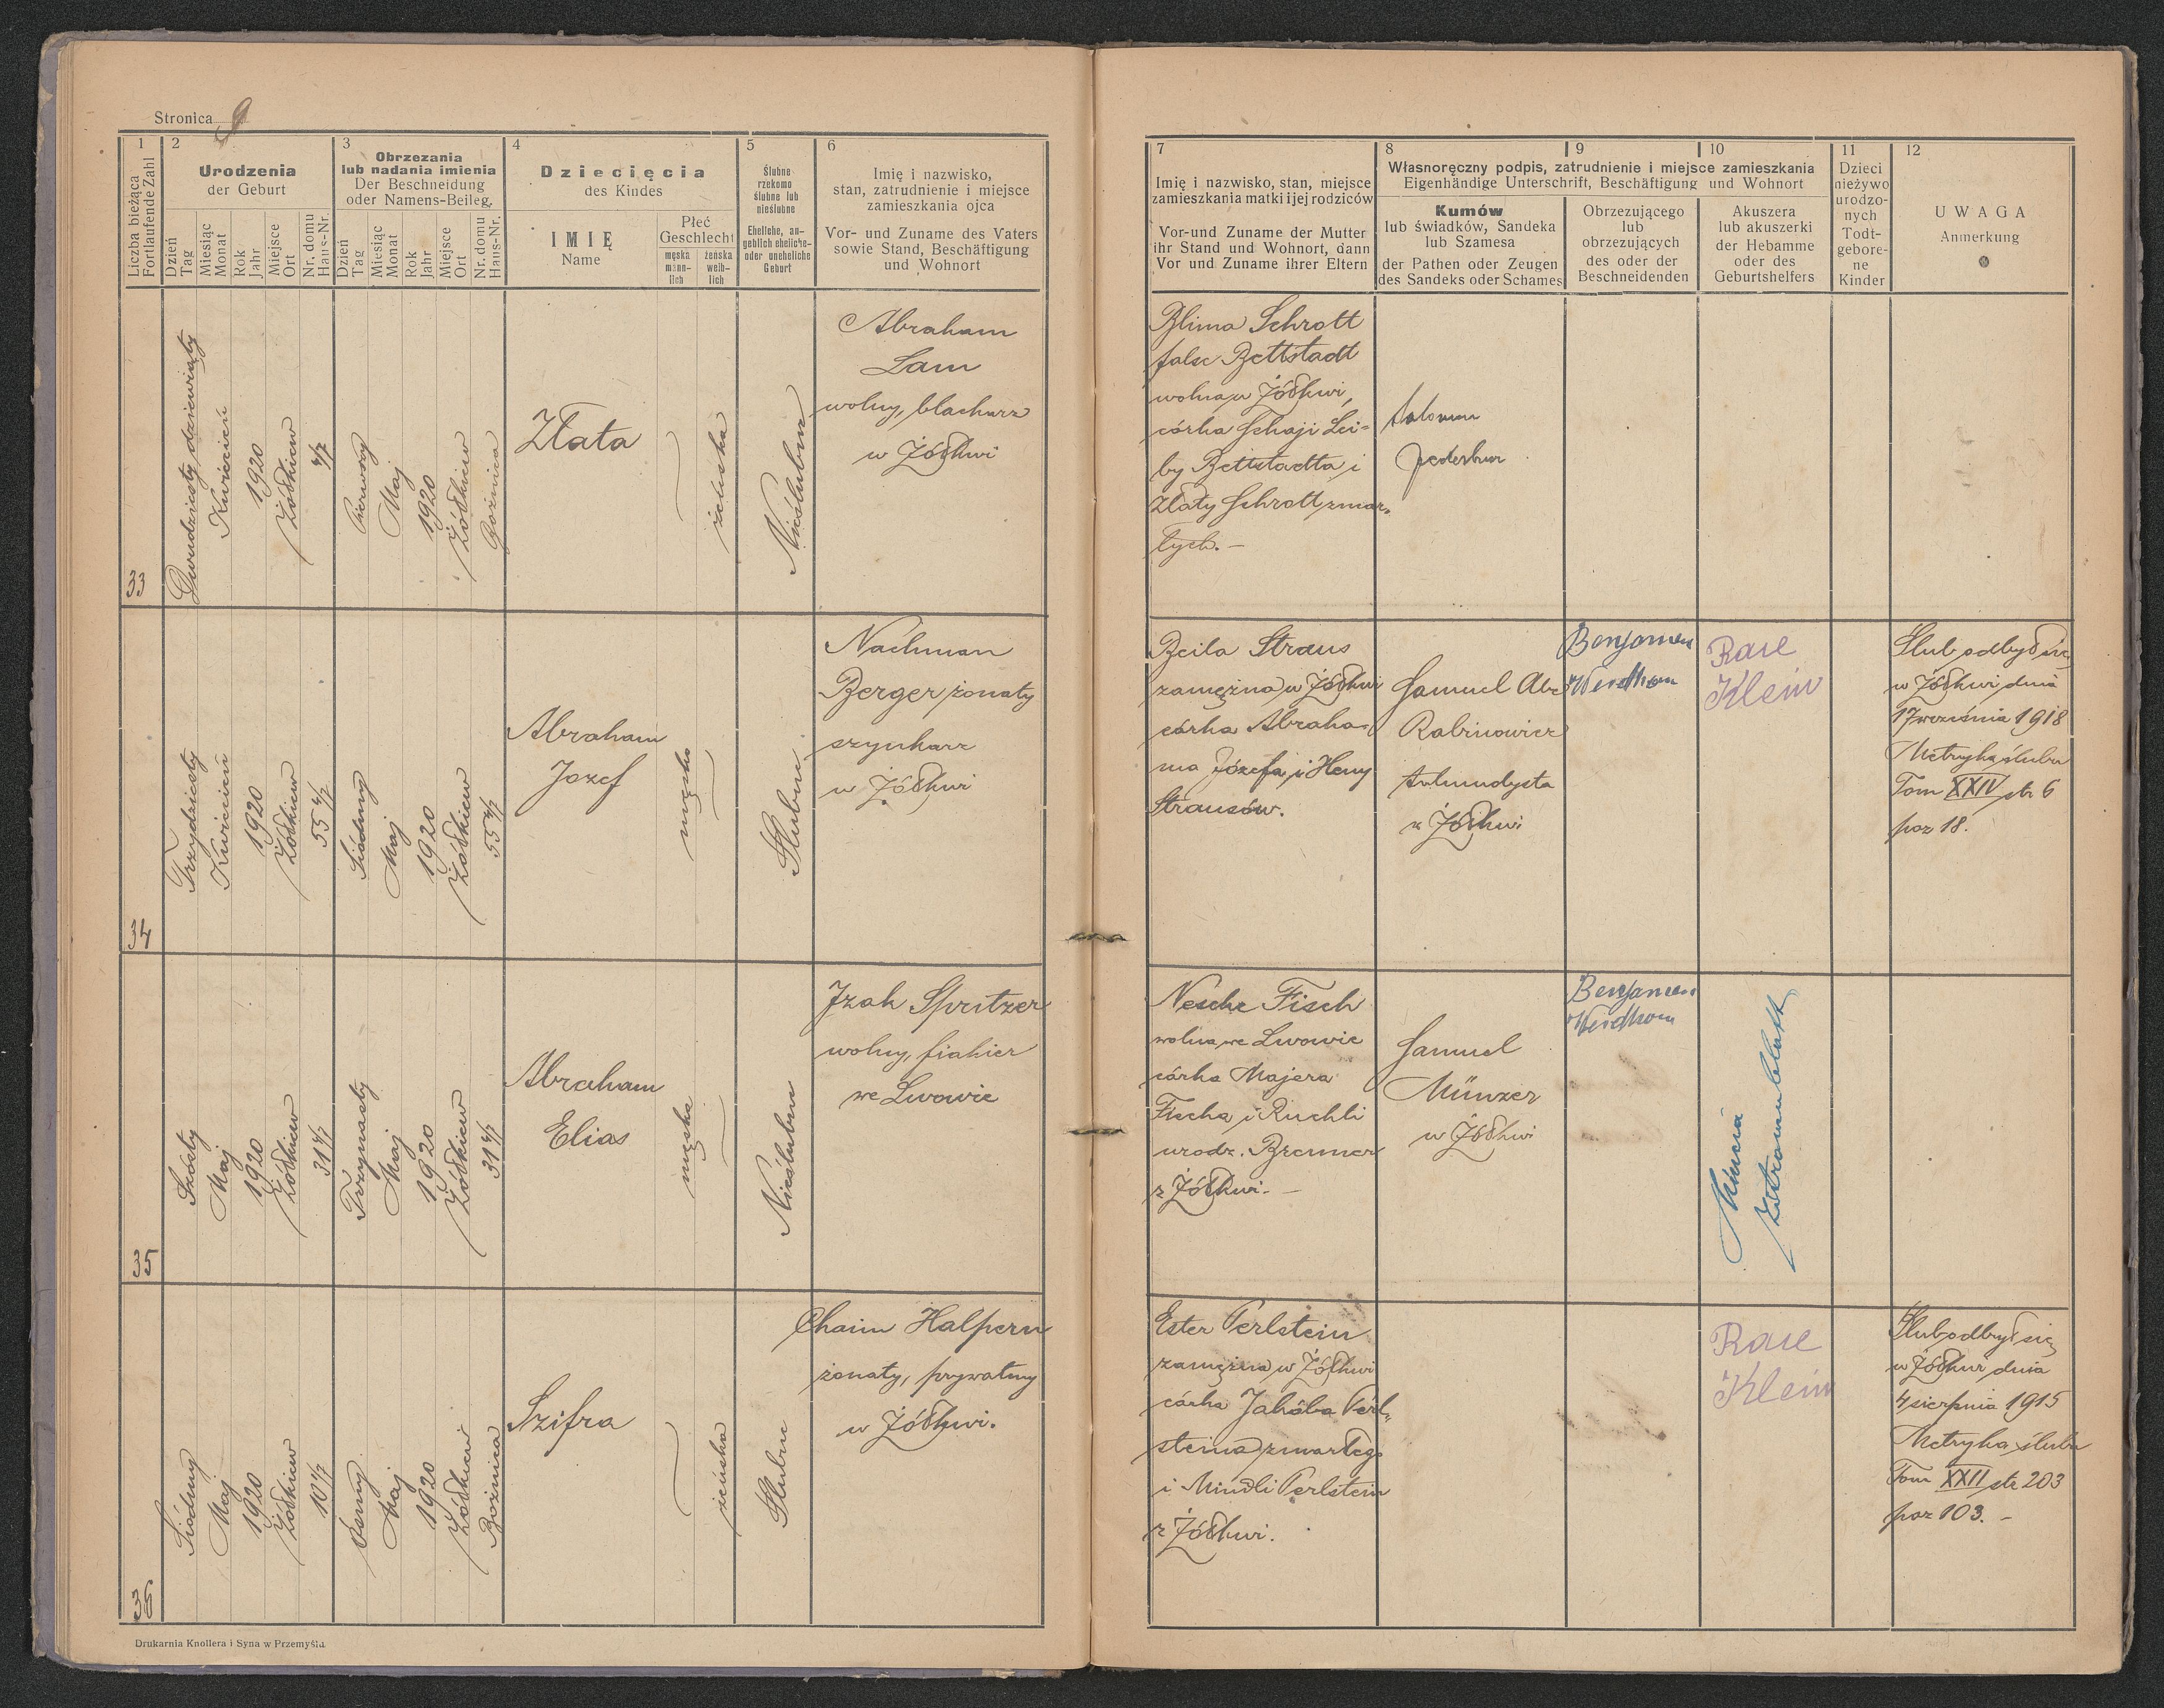 Stronica 9
1
Liczba bieżąca
Fortlaufende Zahl
2
Urodzenia
der Geburt
Dzień
Tag
Miesiąc
Monat
Rok
Jahr
Miejsce
Ort
Nr. domu
Haus-Nr.
3
Obrzezania
lub nadania imienia
Der Beschneidung
oder Namens-Beileg.
Dzień
Tag
Miesiąc
Monat
Rok
Jahr
Miejsce
Ort
Nr. domu
Haus-Nr.
4
Dziecięcia
des Kindes
IMIĘ
Name
Płeć
Geschlecht
męska
männ-
lich
żeńska
weib-
lich
5
Ślubne
rzekomo
ślubne lub
nieślubne
Eheliche, an-
geblich eheliche-
oder uneheliche
Geburt
6
Imię i nazwisko,
stan, zatrudnienie i miejsce
zamieszkania ojca
Vor- und Zuname des Vaters
sowie Stand, Beschäftigung
und Wohnort
7
Imię i nazwisko, stan, miejsce
zamieszkania matki i jej rodziców
Vor-und Zuname der Mutter
ihr Stand und Wohnort, dann
Vor und Zuname ihrer Eltern
8
9
10
Własnoręczny podpis, zatrudnienie i miejsce zamieszkania
Eigenhändige Unterschrift, Beschäftigung und Wohnort
Kumów
lub świadków, Sandeka
lub Szamesa
der Pathen oder Zeugen
des Sandeks oder Schames
Obrzezującego
lub
obrzezujących
des oder der
Beschneidenden
Akuszera
lub akuszerki
der Hebamme
oder des
Geburtshelfers
11
Dzieci
nieżywo
urodzo-
nych
Todt-
gebore-
ne
Kinder
12
UWAGA
Anmerkung
33
Dwudziesty dziewiąty
Kwiecień
1920
Żółkiew
Pierwszy
Maj
1920
Żółkiew
Bożnica
Złata
żeńska
Nieślubne
Abraham
Lam
wolny, blacharz
w Żółkwi
Blima Schrott
false Bettstadt
wolna w Żółkwi,
córka Schaji Lei-
by Bettstadta i
Złaty Schrott zmar-
łych. –
34
Trzydziesty
Kwiecień
1920
Żółkiew
55 4/7
Siódmy
Maj
1920
Żółkiew
55 4/7
Abraham
Jozef
męska
Ślubne
Nachman
Berger żonaty
szynkarz
w Żółkwi
Beila Straus
zamężna w Żółkwi
córka Abraha-
ma Józefa i Heny
Strausów.
Samuel Abe
Rabinowicz
talmudysta
w Żółkwi
Benjamen
Weidhorn
Rare
Klein
Ślub odbył się
w Żółkwi dnia
17 września 1918
Metryka ślubu
Tom XXIV str 6
poz 18.
35
Szósty
Maj
1920
Żółkiew
31 4/7
Trzynasty
Maj
1920
Żółkiew
31 4/7
Abraham
Elias
męska
Nieślubne
Izak Spritzer
wolny, fiakier
we Lwowie
Nesche Fisch
wolna we Lwowie
córka Majera
Fischa i Ruchli
urodz. Bremmer
z Żółkwi. –
Samuel
Münzer
w Żółkwi
Benjamen
Weidhorn
36
Siódmy
Maj
1920
Żółkiew
10 4/7
Ósmy
Maj
1920
Żółkiew
Bożnica
Szifra
żeńska
Ślubne
Chaim Halpern
żonaty, prywatny
w Żółkwi.
Ester Perlstein
zamężna w Żółkwi
córka Jakóba Perl-
steina zmarłego
i Mindli Perlstein
z Żółkwi.
Rare
Klein
Ślub odbył się
w Żółkwi dnia
4 sierpnia 1915
Metryka ślubu
Tom XXII str 203
poz 103. –
Drukarnia Knollera i Syna w Przemyślu